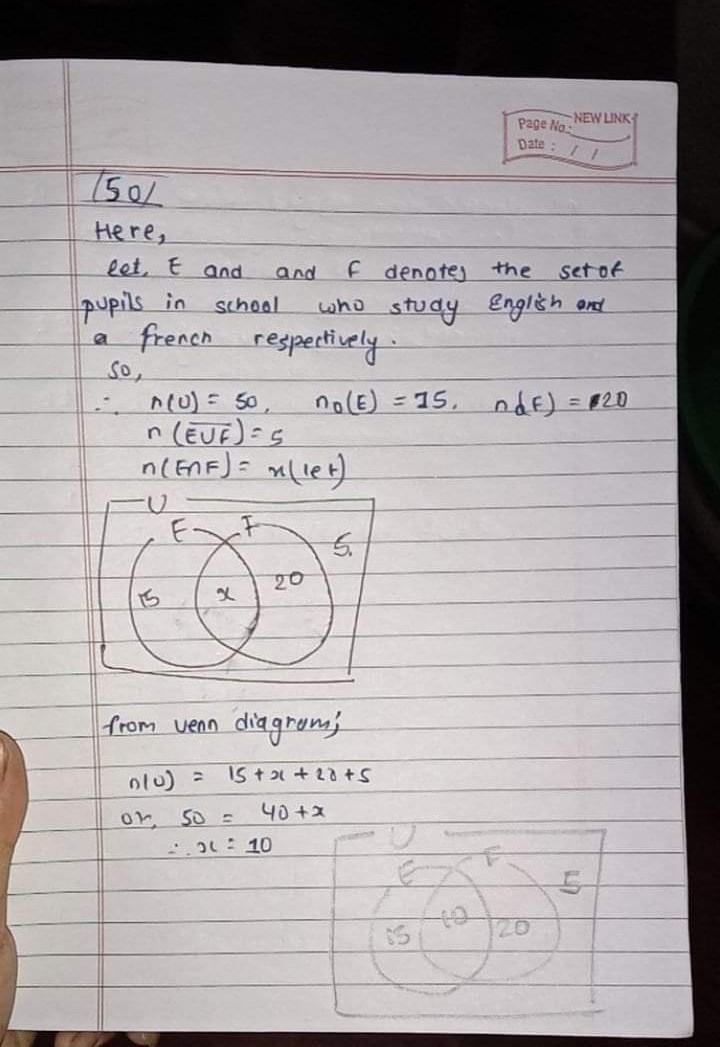 NEW LINK
Page No.:
Date : / /
50
Here,
let, E and and F denotes the set of
pupils in school who study English and
a french respectively.
so,
∴ n(U) = 50, no(E) = 15, no(F) = 20
n(E∪F)‾ = 5
n(E∩F) = x(let)
U
E F
5
15 x 20
from venn diagram;
n(U) = 15 + x + 20 + 5
or, 50 = 40 + x
∴ x = 10
U
E F
5
15 10 20